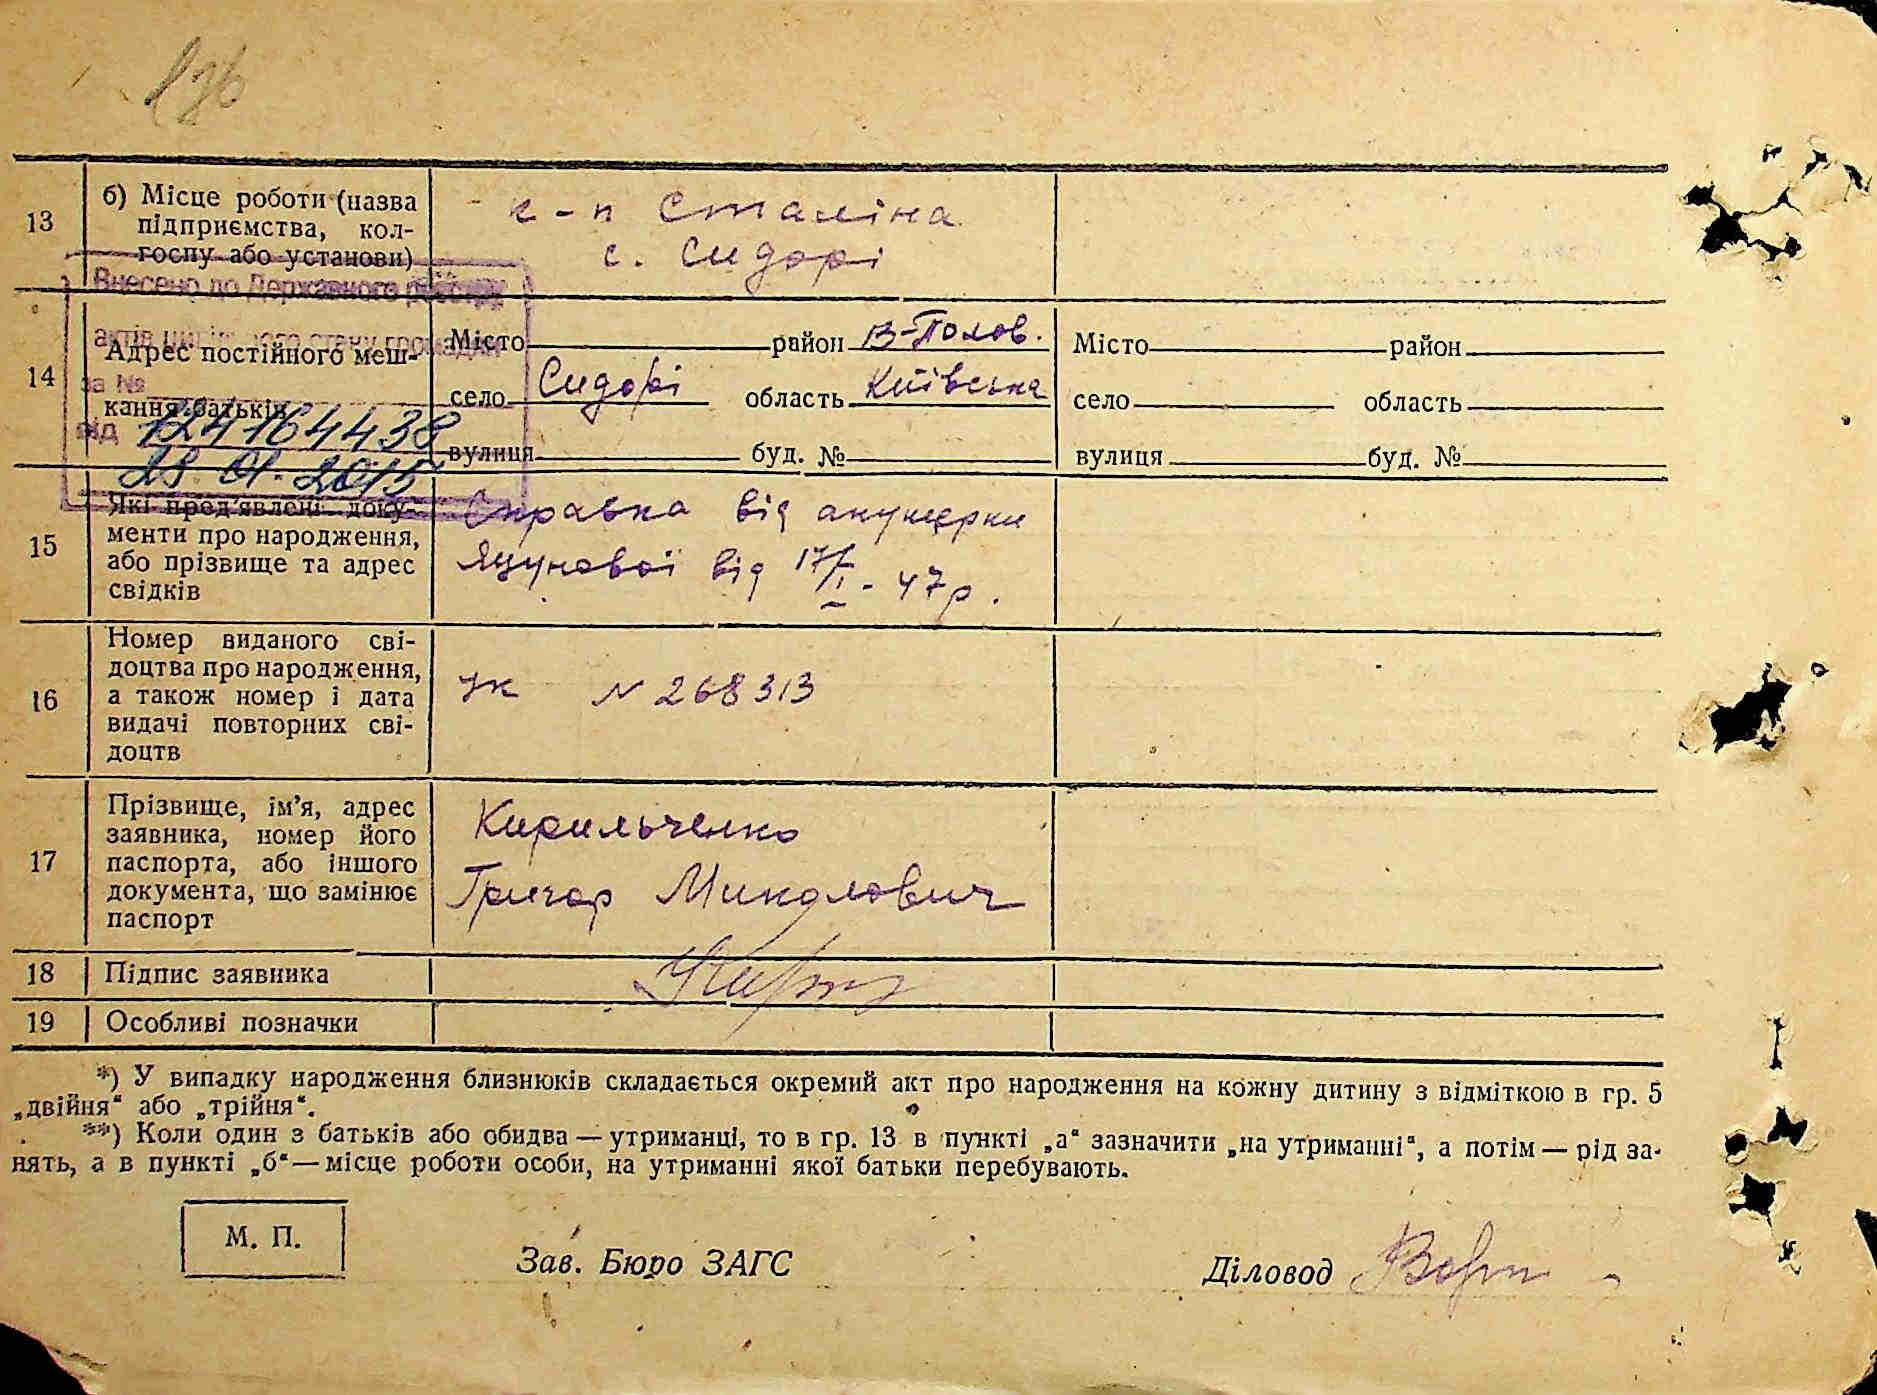 13
б) Місце роботи (назва
підприємства, кол-
госпу або установи)
к-п Сталіна
с. Сидорі
Внесено до Державного реєстру
актів цивільного стану громадян
за № 124164438
від 23.01.2015
14
Адрес постійного меш-
кання батьків
Місто район В-Полов.
село Сидорі область Київська
вулиця буд. №
Місто район
село область
вулиця буд. №
15
Які пред'явлені доку-
менти про народження,
або прізвище та адрес
свідків
Справка від акушерки
Яцунової від 17/I - 47р.
16
Номер виданого сві-
доцтва про народження,
а також номер і дата
видачі повторних сві-
доцтв
N 268313
17
Прізвище, ім'я, адрес
заявника, номер його
паспорта, або іншого
документа, що замінює
паспорт
Кирильченко
Григор Миколович
18
Підпис заявника
19
Особливі позначки
*) У випадку народження близнюків складається окремий акт про народження на кожну дитину з відміткою в гр. 5
„двійня“ або „трійня“.
**) Коли один з батьків або обидва — утриманці, то в гр. 13 в пункті „а“ зазначити „на утриманні“, а потім — рід за-
нять, а в пункті „б“ — місце роботи особи, на утриманні якої батьки перебувають.
М. П.
Зав. Бюро ЗАГС
Діловод